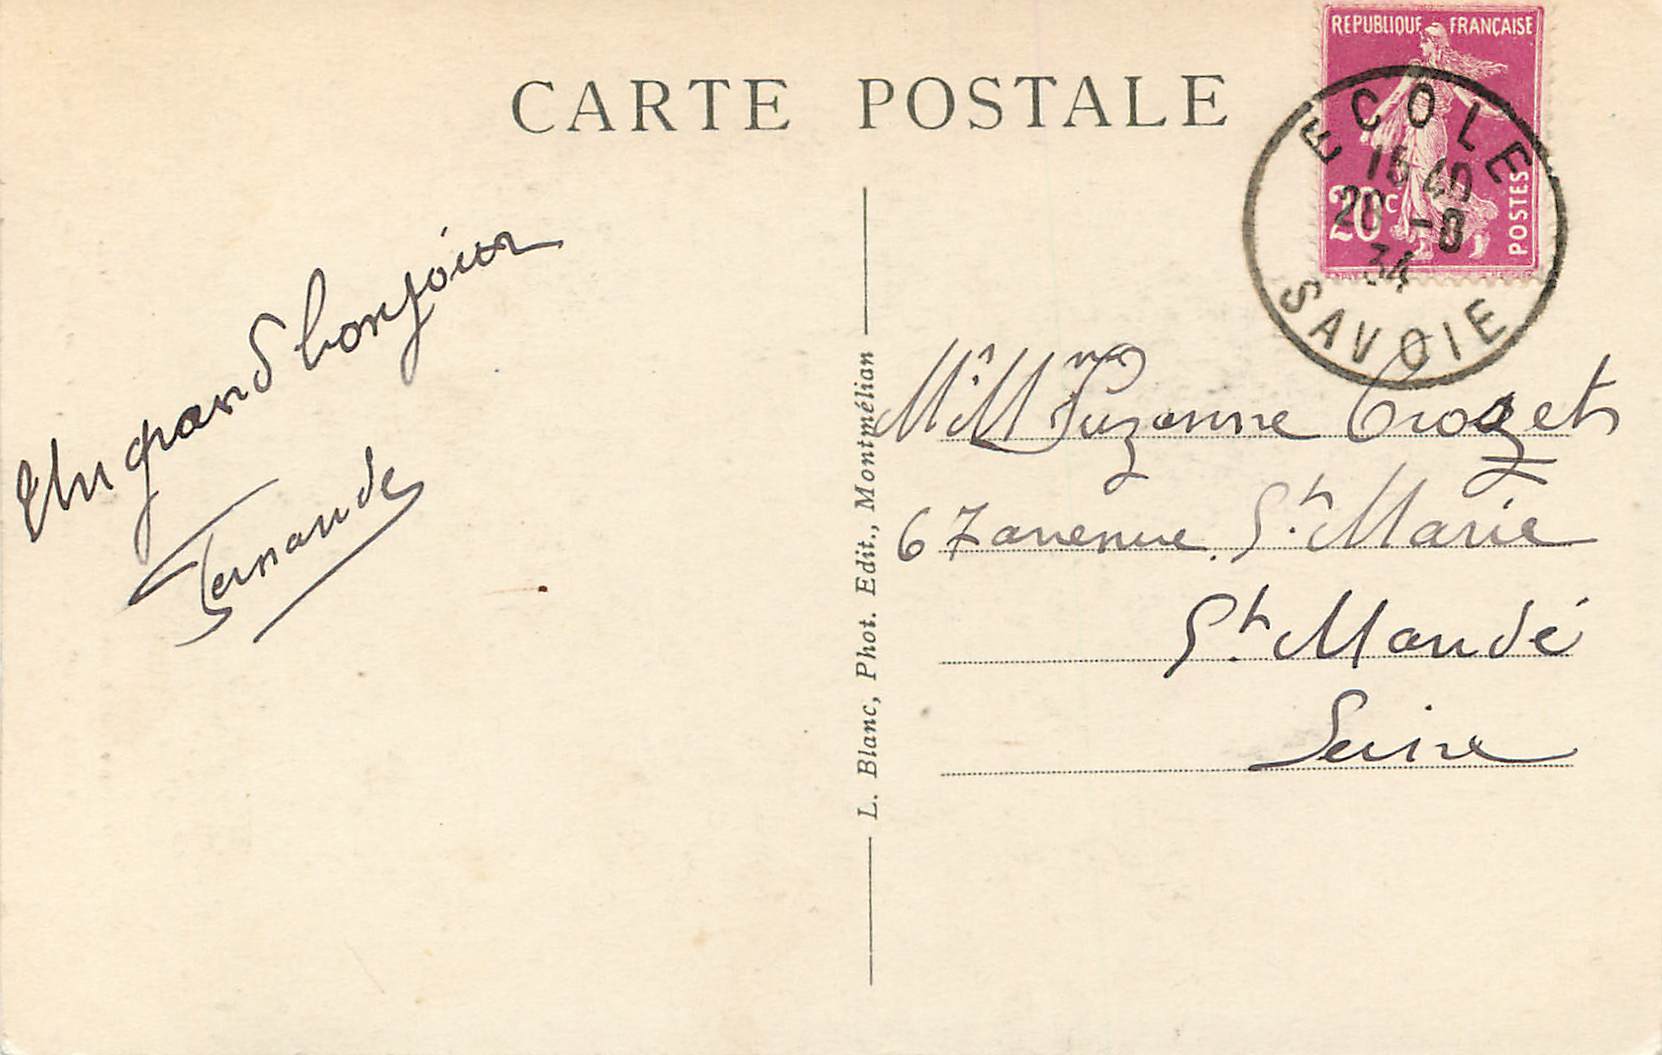 CARTE POSTALE
REPUBLIQUE FRANÇAISE
20c
POSTES
ECOLE
15 40
20 -8
34
SAVOIE
Un grand bonjour
Fernande
L. Blanc, Phot. Edit., Montmélian
Suzanne Crozet
67 avenue St. Marie
St. Mandé
Seine